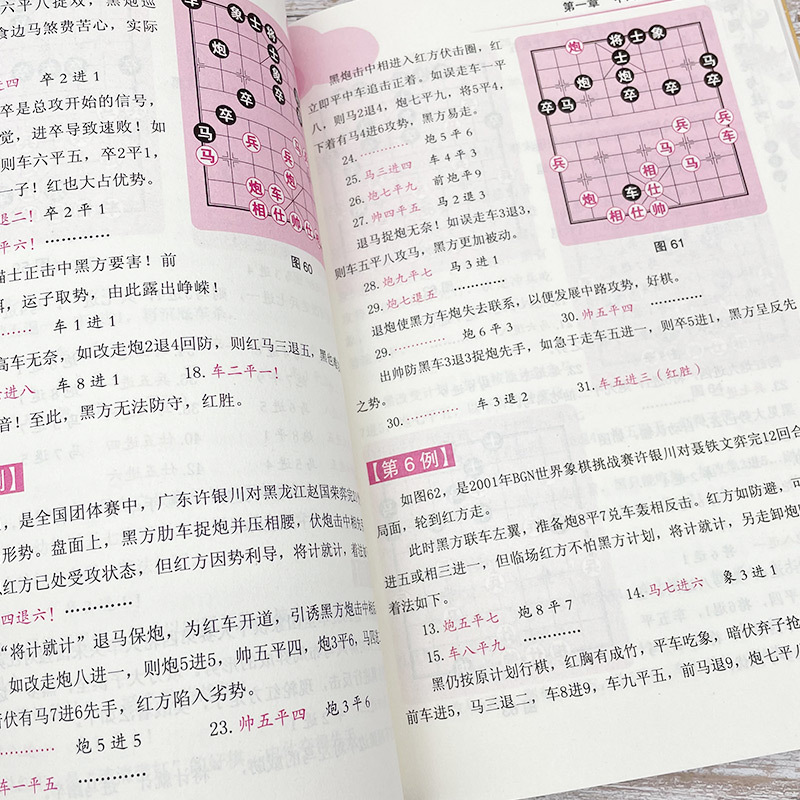 六平八捉双，黑炮巡
食边马煞费苦心，实际
进四 卒2进1
卒是总攻开始的信号，
觉，进卒导致速败！如
则车六平五，卒2平1，
一子！红也大占优势。
退二！ 卒2平1
平六！…………
猫士正击中黑方要害！前
，运子取势，由此露出峥嵘！
车1进1
高车无奈，如改走炮2退4回防，则红马三退五，黑
进八 车8进1 18.车二平一！
音！至此，黑方无法防守，红胜。
图60
例】
，是全国团体赛中，广东许银川对黑龙江赵国荣弈完
形势。盘面上，黑方肋车捉炮并压相腰，伏炮击中相
红方已处受攻状态，但红方因势利导，将计就计，着法如
四退六！…………
“将计就计”退马保炮，为红车开道，引诱黑方炮击中相
如改走炮八进一，则炮5进5，帅五平四，炮3平6，马四
暗伏有马7进6先手，红方陷入劣势。
………… 炮5进5 23.帅五平四 炮3平6
车一平五
第一章
黑炮击中相进入红方伏击圈，红
立即平中车追击正着。如误走车一平
八，则马2退4，炮七平九，将5平4，
下着有马4进6攻势，黑方易走。
24.………… 炮5平6
25.马三进四 车4平3
26.炮七平九 前炮平9
27.帅四平五 马2退3
退马捉炮无奈！如误走车3退3，
则车五平八攻马，黑方更加被动。
28.炮九平七 马3进1
29.炮七退五 …………
退炮使黑方车炮失去联系，以便发展中路攻势，好棋。
29.………… 炮6平3 30.帅五平四 …………
出帅防黑车3退3捉炮先手，如急于走车五进一，则卒5进1，黑方呈反先
之势。
30.………… 车3退2 31.车五进三（红胜）
图61
【第6例】
如图62，是2001年BGN世界象棋挑战赛许银川对聂铁文弈完12回合
局面，轮到红方走。
此时黑方联车左翼，准备炮8平7兑车轰相反击。红方如防避，可
进五或相三进一，但临场红方不怕黑方计划，将计就计，另走卸炮
着法如下。
13.炮五平七 炮8平7 14.马七进六 象3进1
15.车八平九 …………
黑仍按原计划行棋，红胸有成竹，平车吃象，暗伏弃子抢
前车进5，马三退二，车8进9，车九平五，前马退9，炮七平八